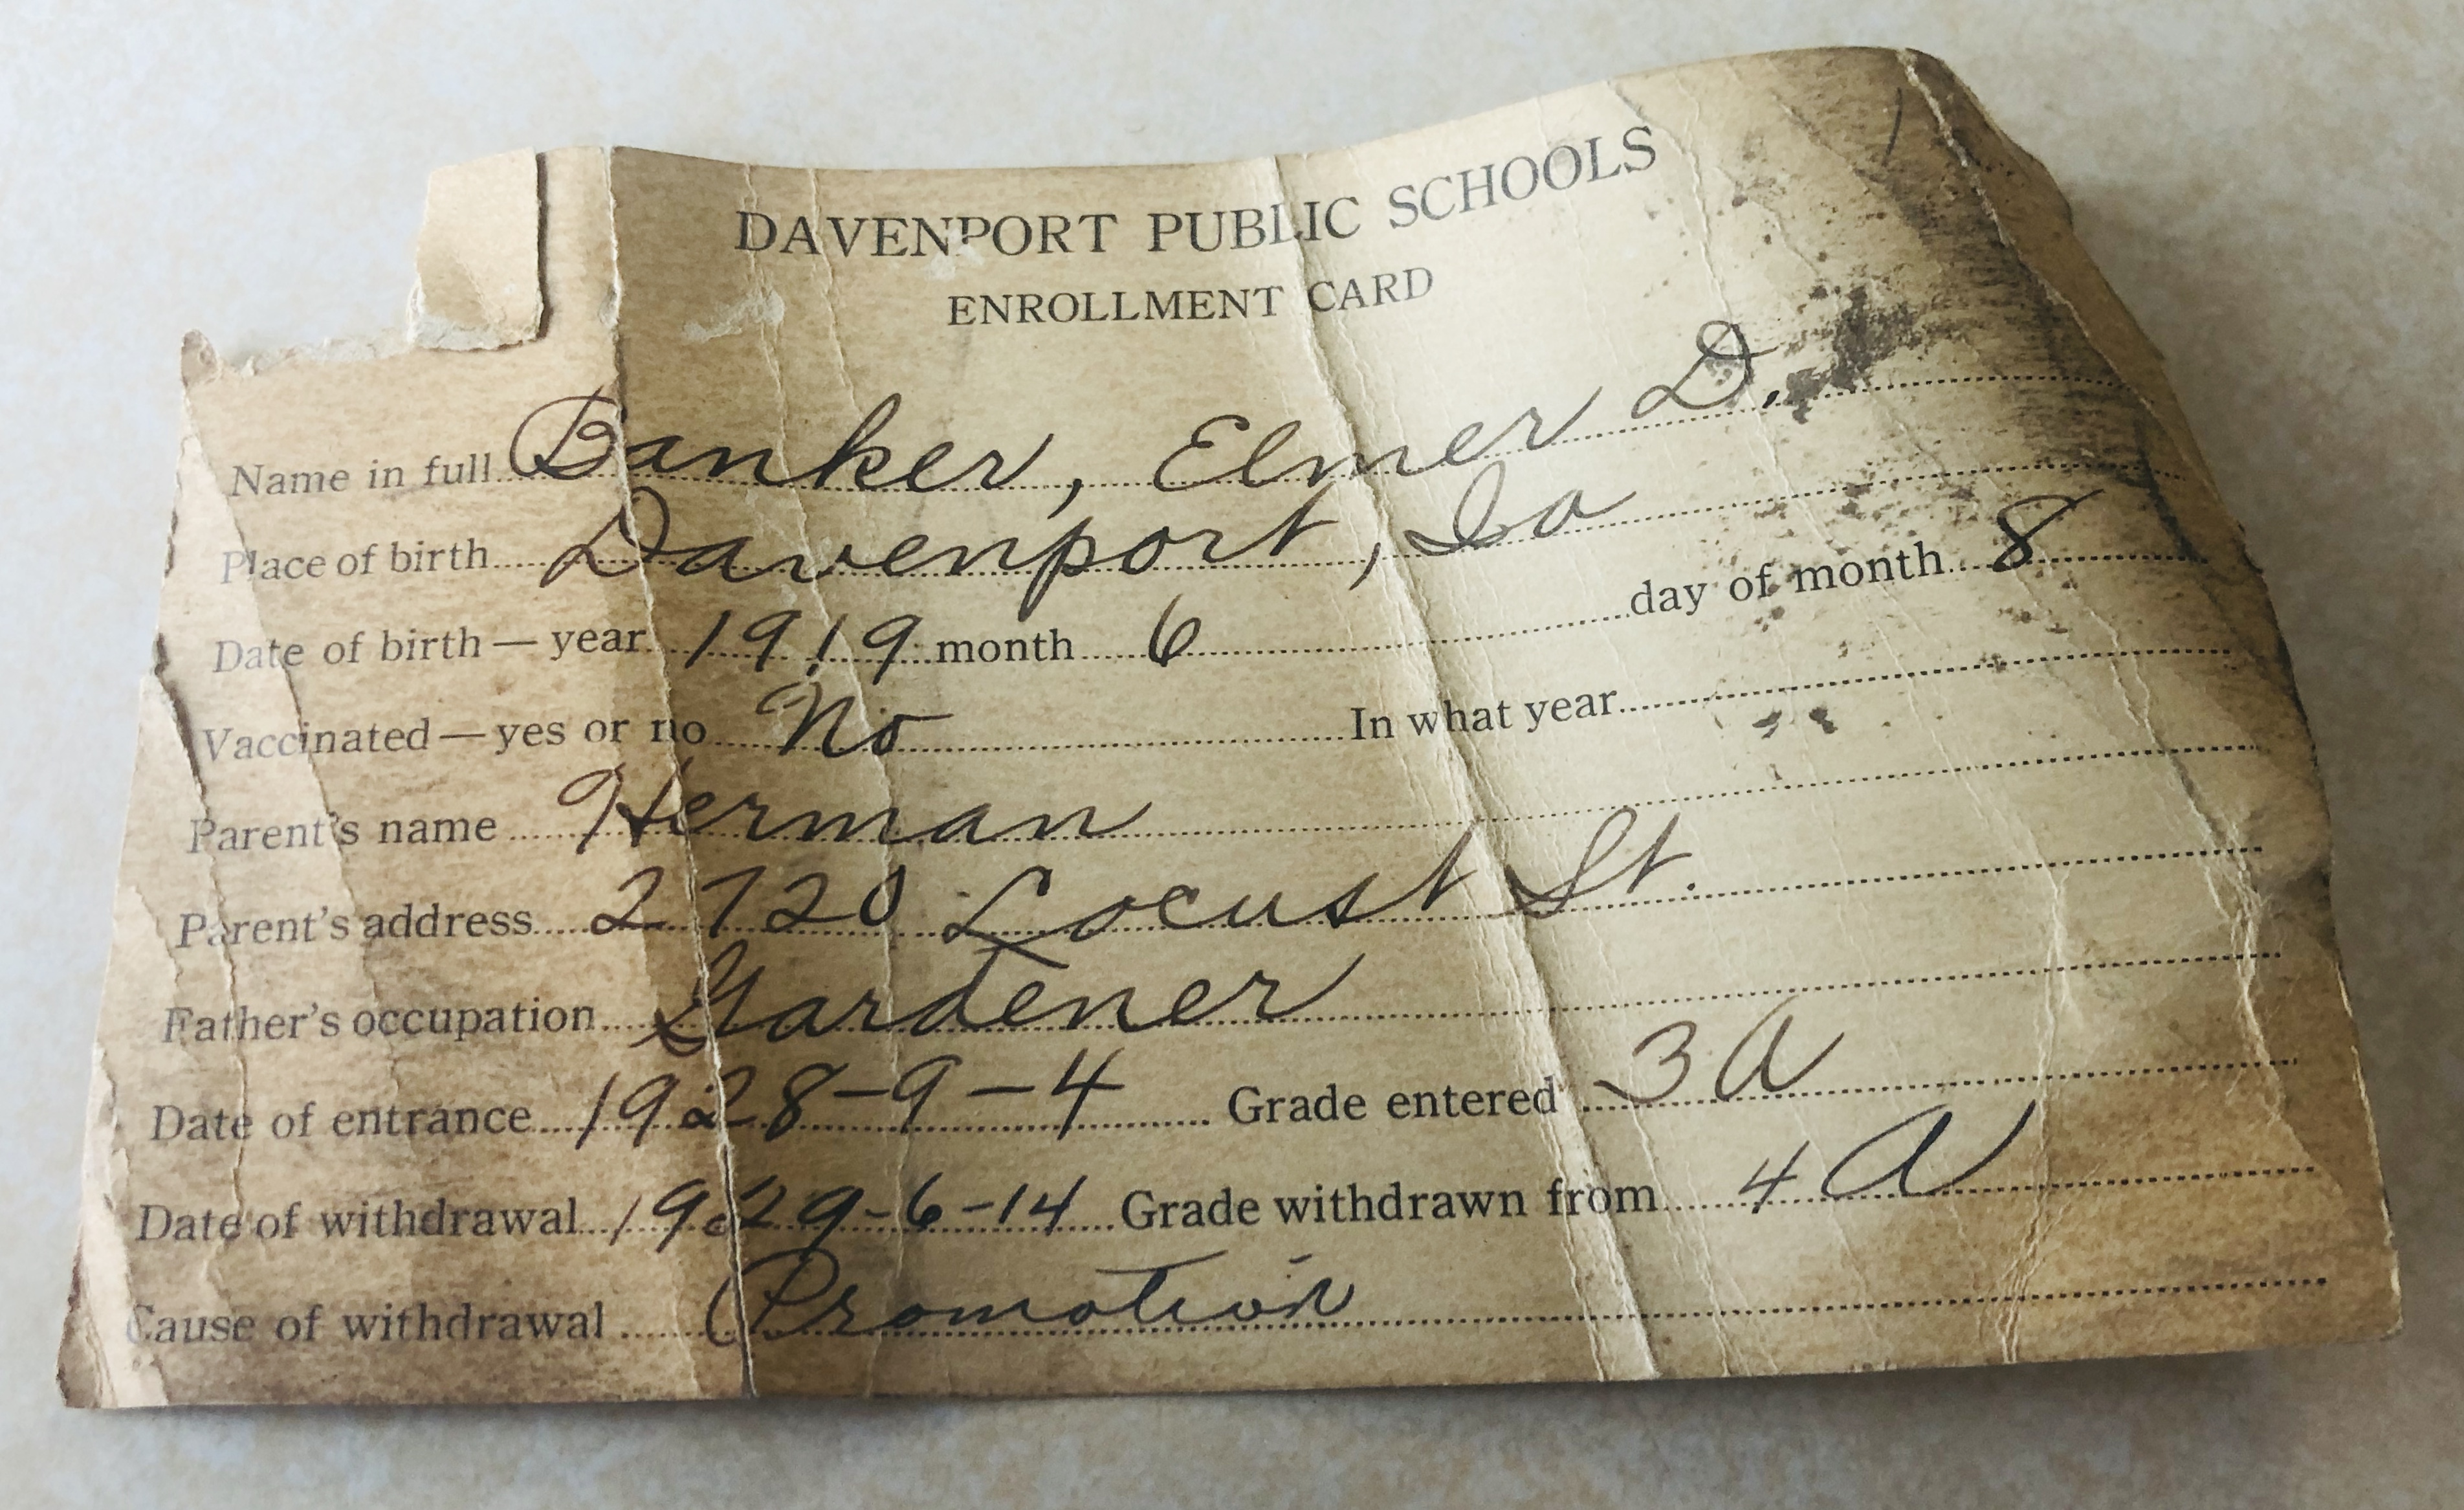 DAVENPORT PUBLIC SCHOOLS
ENROLLMENT CARD
Name in full Banker, Elmer D.
Place of birth Davenport, Ia
Date of birth — year 1919 month 6 day of month 8
Vaccinated — yes or no No In what year
Parent's name Herman
Parent's address 2720 Locust St.
Father's occupation Gardener
Date of entrance 1928-9-4 Grade entered 3A
Date of withdrawal 1929-6-14 Grade withdrawn from 4A
Cause of withdrawal Promotion